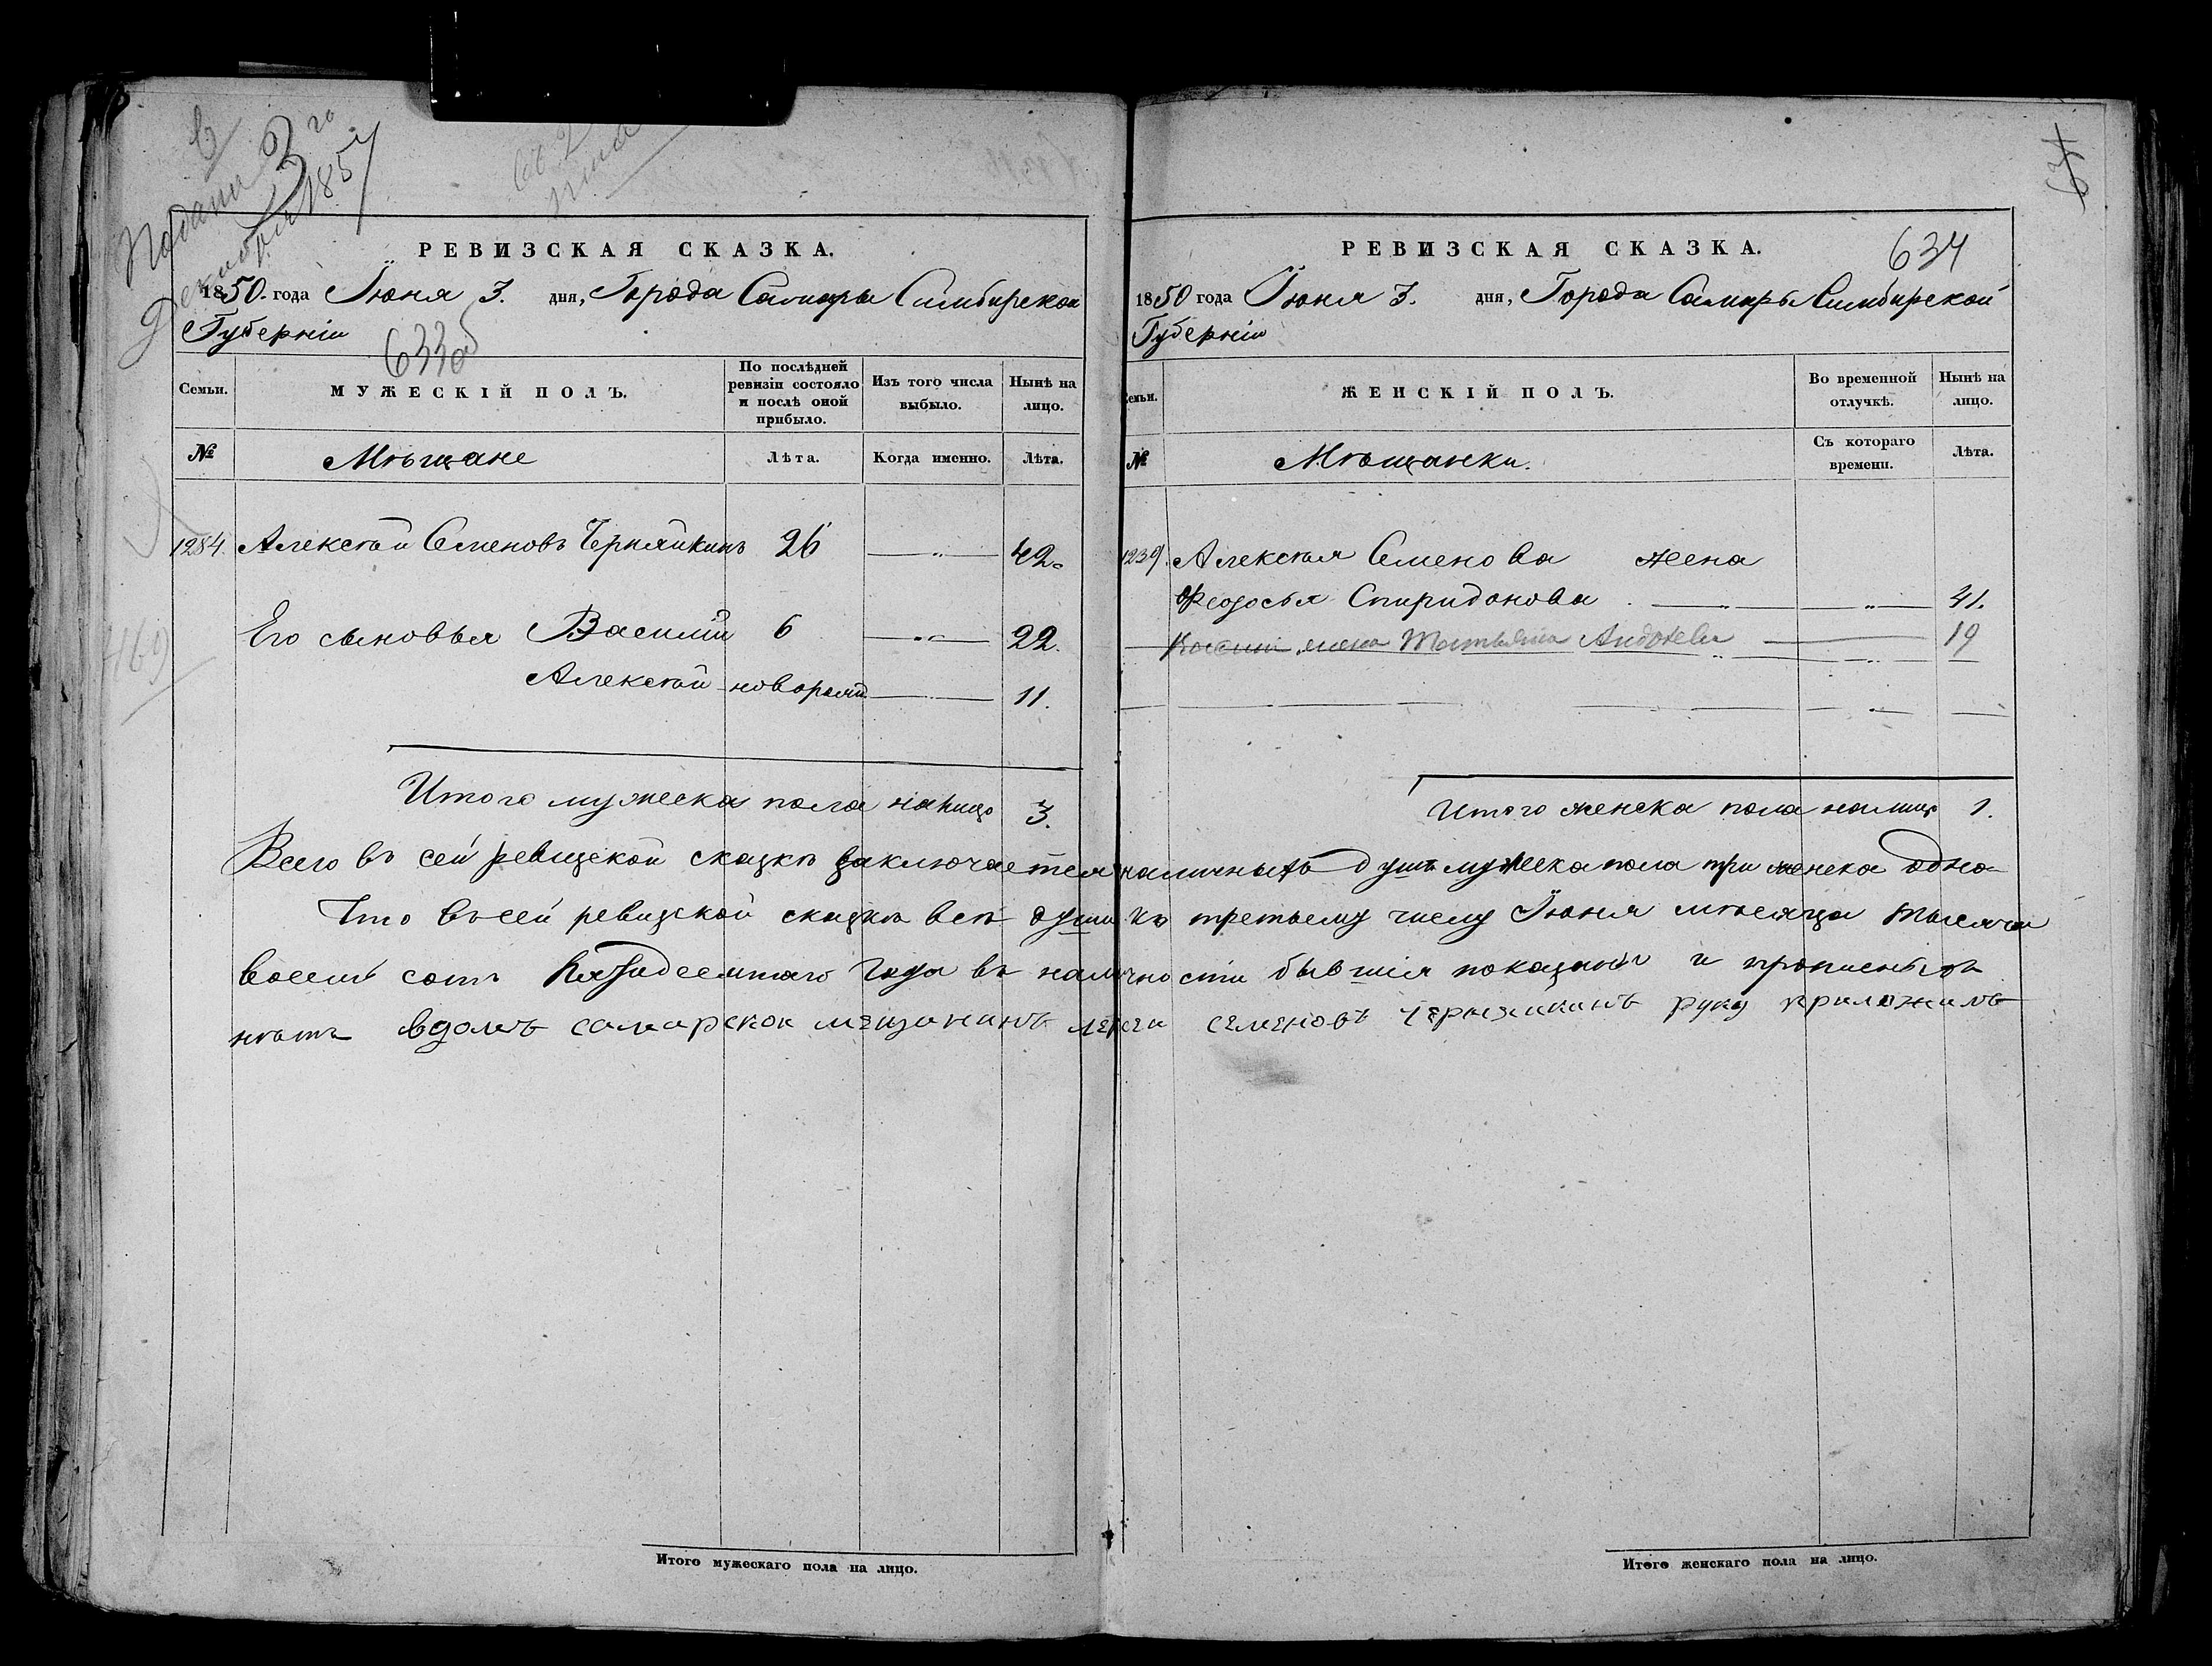 Подана 3го
Декабря 1857
РЕВИЗСКАЯ СКАЗКА.
1850. года Іюня 3. дня, Города Самары Симбирской
Губерніи
633об
Семьи.
МУЖЕСКІЙ ПОЛЪ.
По послѣдней ревизіи состояло и послѣ оной прибыло.
Изъ того числа выбыло.
Нынѣ на лицо.
№
Мѣщане
Лѣта.
Когда именно.
Лѣта.
1284. Алексѣй Семеновъ 26 — „ — 42.
Его сыновья Василій 6 — „ — 22.
Алексѣй новорожд — „ — 11.
469
Итого мужеска пола налицо 3.
РЕВИЗСКАЯ СКАЗКА.
634
1850 года Іюня 3. дня, Города Самары Симбирской
Губерніи
Семьи.
ЖЕНСКІЙ ПОЛЪ.
Во временной отлучкѣ.
Нынѣ на лицо.
№
Мѣщанки.
Съ котораго времени.
Лѣта.
1239. Алексѣя Семенова жена
Феодосья Спиридонова — „ — 41.
жена Татьяна 19
Итого женска пола налицо 1.
Всего въ сей ревизской сказкѣ заключается наличныхъ душъ мужеска пола три женска одно
Что въ сей ревизской сказкѣ всѣ души къ третьему числу Іюня мѣсяца тысяча
восемь сотъ пятидесятаго года въ наличности бывшія показаны и прописныхъ
нѣтъ вдомъ самарской мещининъ семеновъ руку приложилъ
Итого мужескаго пола на лицо.
Итого женскаго пола на лицо.